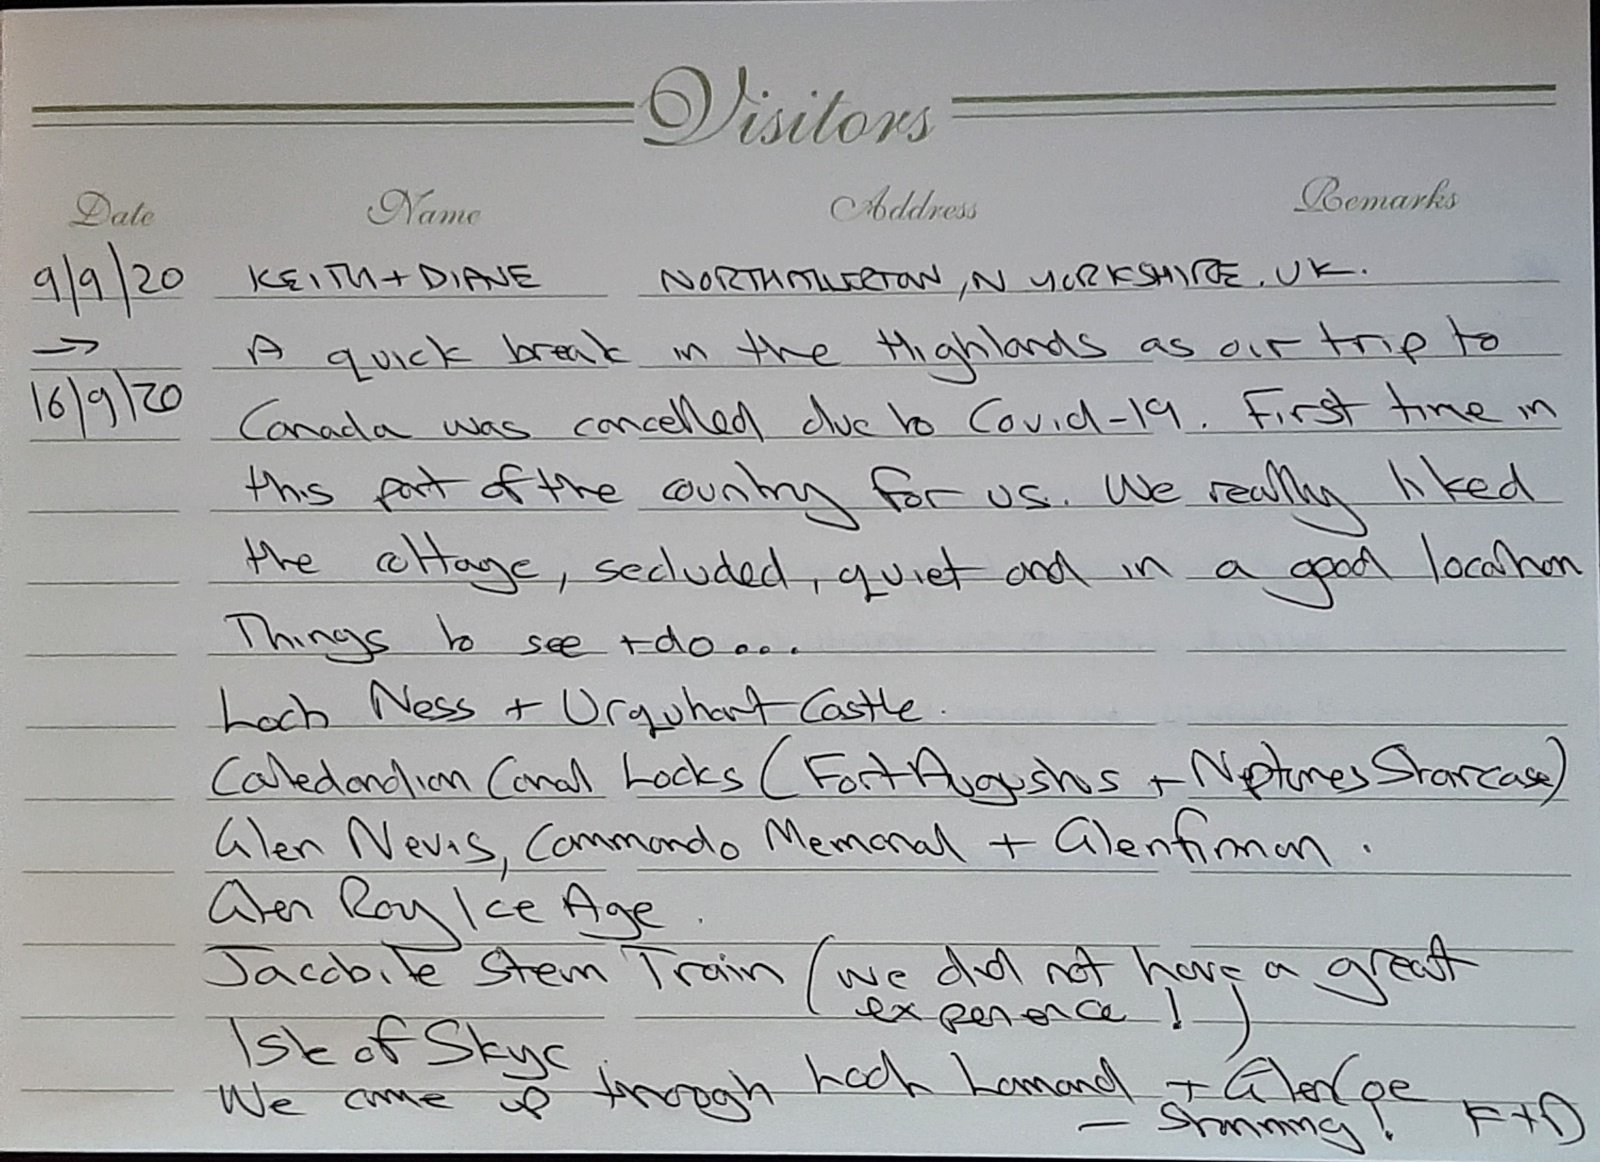 Visitors
Date Name Address Remarks
9/9/20 KEITH + DIANE NORTHALLERTON, N YORKSHIRE, UK.
→ A quick break in the Highlands as our trip to
16/9/20 Canada was cancelled due to Covid-19. First time in
this part of the country for us. We really liked
the cottage, secluded, quiet and in a good location
Things to see + do...
Loch Ness + Urquhart Castle.
Caledondion Canal Locks (Fort Augustus + Neptunes Starcase)
Glen Nevis, Commando Memorial + Glenfinnan.
Glen Roy Ice Age.
Jacobite Stem Train (we did not have a great
experience!)
Isle of Skye.
We came up through Loch Lomond + GlenCoe
- Stunning! K+D